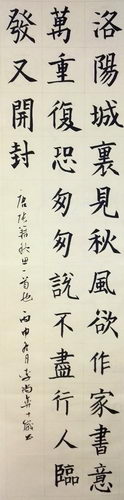 洛陽城裏見秋風欲作家書意
萬重復恐匆匆說不盡行人臨
發又開封
唐張籍秋思一首 丙申 月 十歲書